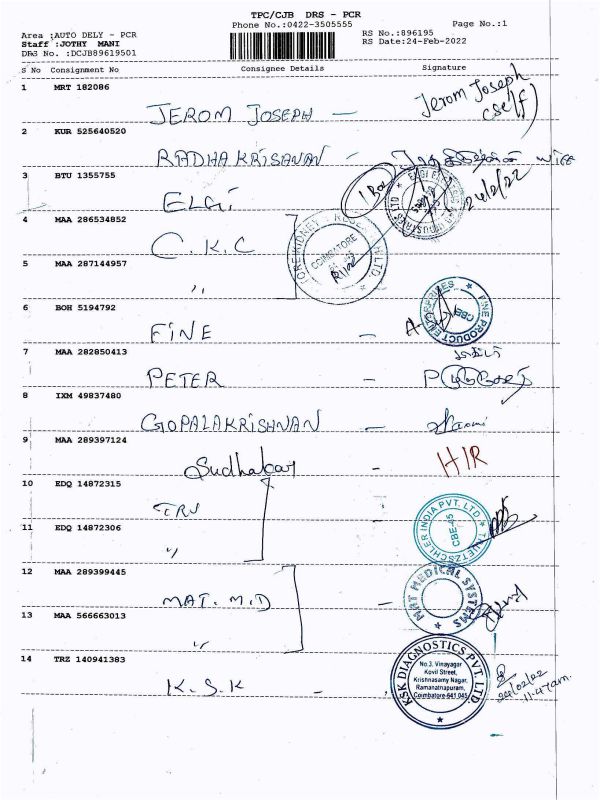 TPC/CJB DRS - PCR
Phone No.:0422-3505555
Page No.:1
Area :AUTO DELY - PCR
RS No.:896195
Staff :JOTHY MANI
RS Date:24-Feb-2022
DRS No. :DCJB89619501
S No Consignment No Consignee Details Signature
1 MRT 182086
JEROM JOSEPH - Jerom Joseph
(self)
2 KUR 525640520
RADHAKRISANAN -
3 BTU 1355755
ELGi
1 Box
24/2/22
4 MAA 286534852
C.K.C
COIMBATORE
5 MAA 287144957
"
6 BOH 5194792
FINE -
FINE PRODUCT ENTERPRISES
CBE
7 MAA 282850413
PETER -
8 IXM 49837480
GOPALAKRISHNAN -
9 MAA 289397124
Sudhakar - H/R
10 EDQ 14872315
TRU
T.A.NETZSCHLER INDIA PVT. LTD.
CBE-45
11 EDQ 14872306
"
12 MAA 289399445
MAT. M.D -
MAT MEDICAL SYSTEMS
13 MAA 566663013
"
14 TRZ 140941383
K.S.K - -
KSK DIAGNOSTICS PVT. LTD.
No.3. Vinayagar
Kovil Street,
Krishnasamy Nagar,
Ramanathapuram,
Coimbatore-641 045
24/02/22
11.47am.